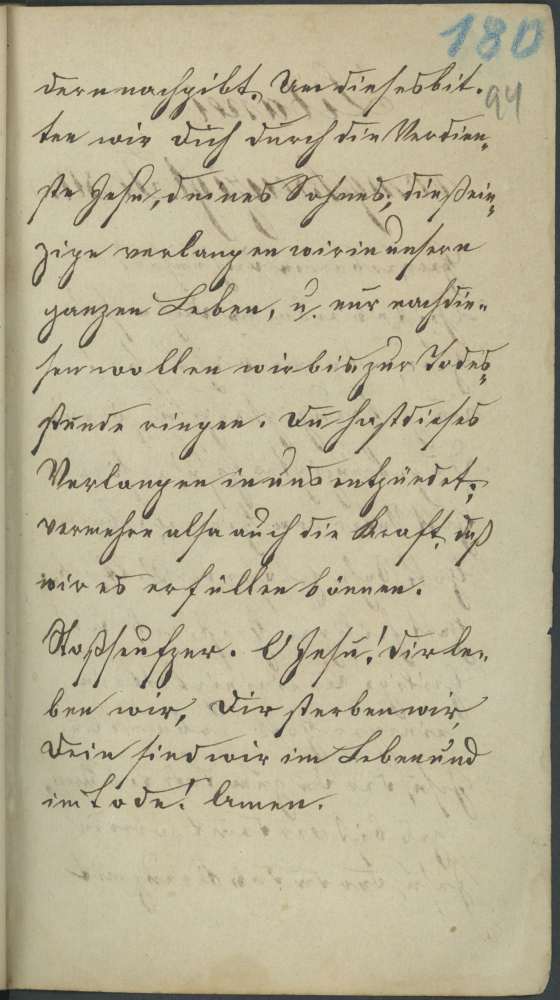 180
94
dern nachgibt. Um dieses bit-
ten wir Dich durch die Verdien-
ste Jesu, deines Sohnes; dieß ein-
zige verlangen wir in unsern
ganzen Leben, u. nur nach die-
sen wollen wir bis zur Todes-
stunde ringen. Du hast dieses
Verlangen in uns entzündet;
vermehre also auch die Kraft, daß
wir es erfüllen können.
Stoßseufzer. O Jesu! Dir le-
ben wir, Dir sterben wir,
Dein sind wir im Leben und
im Tode! Amen.